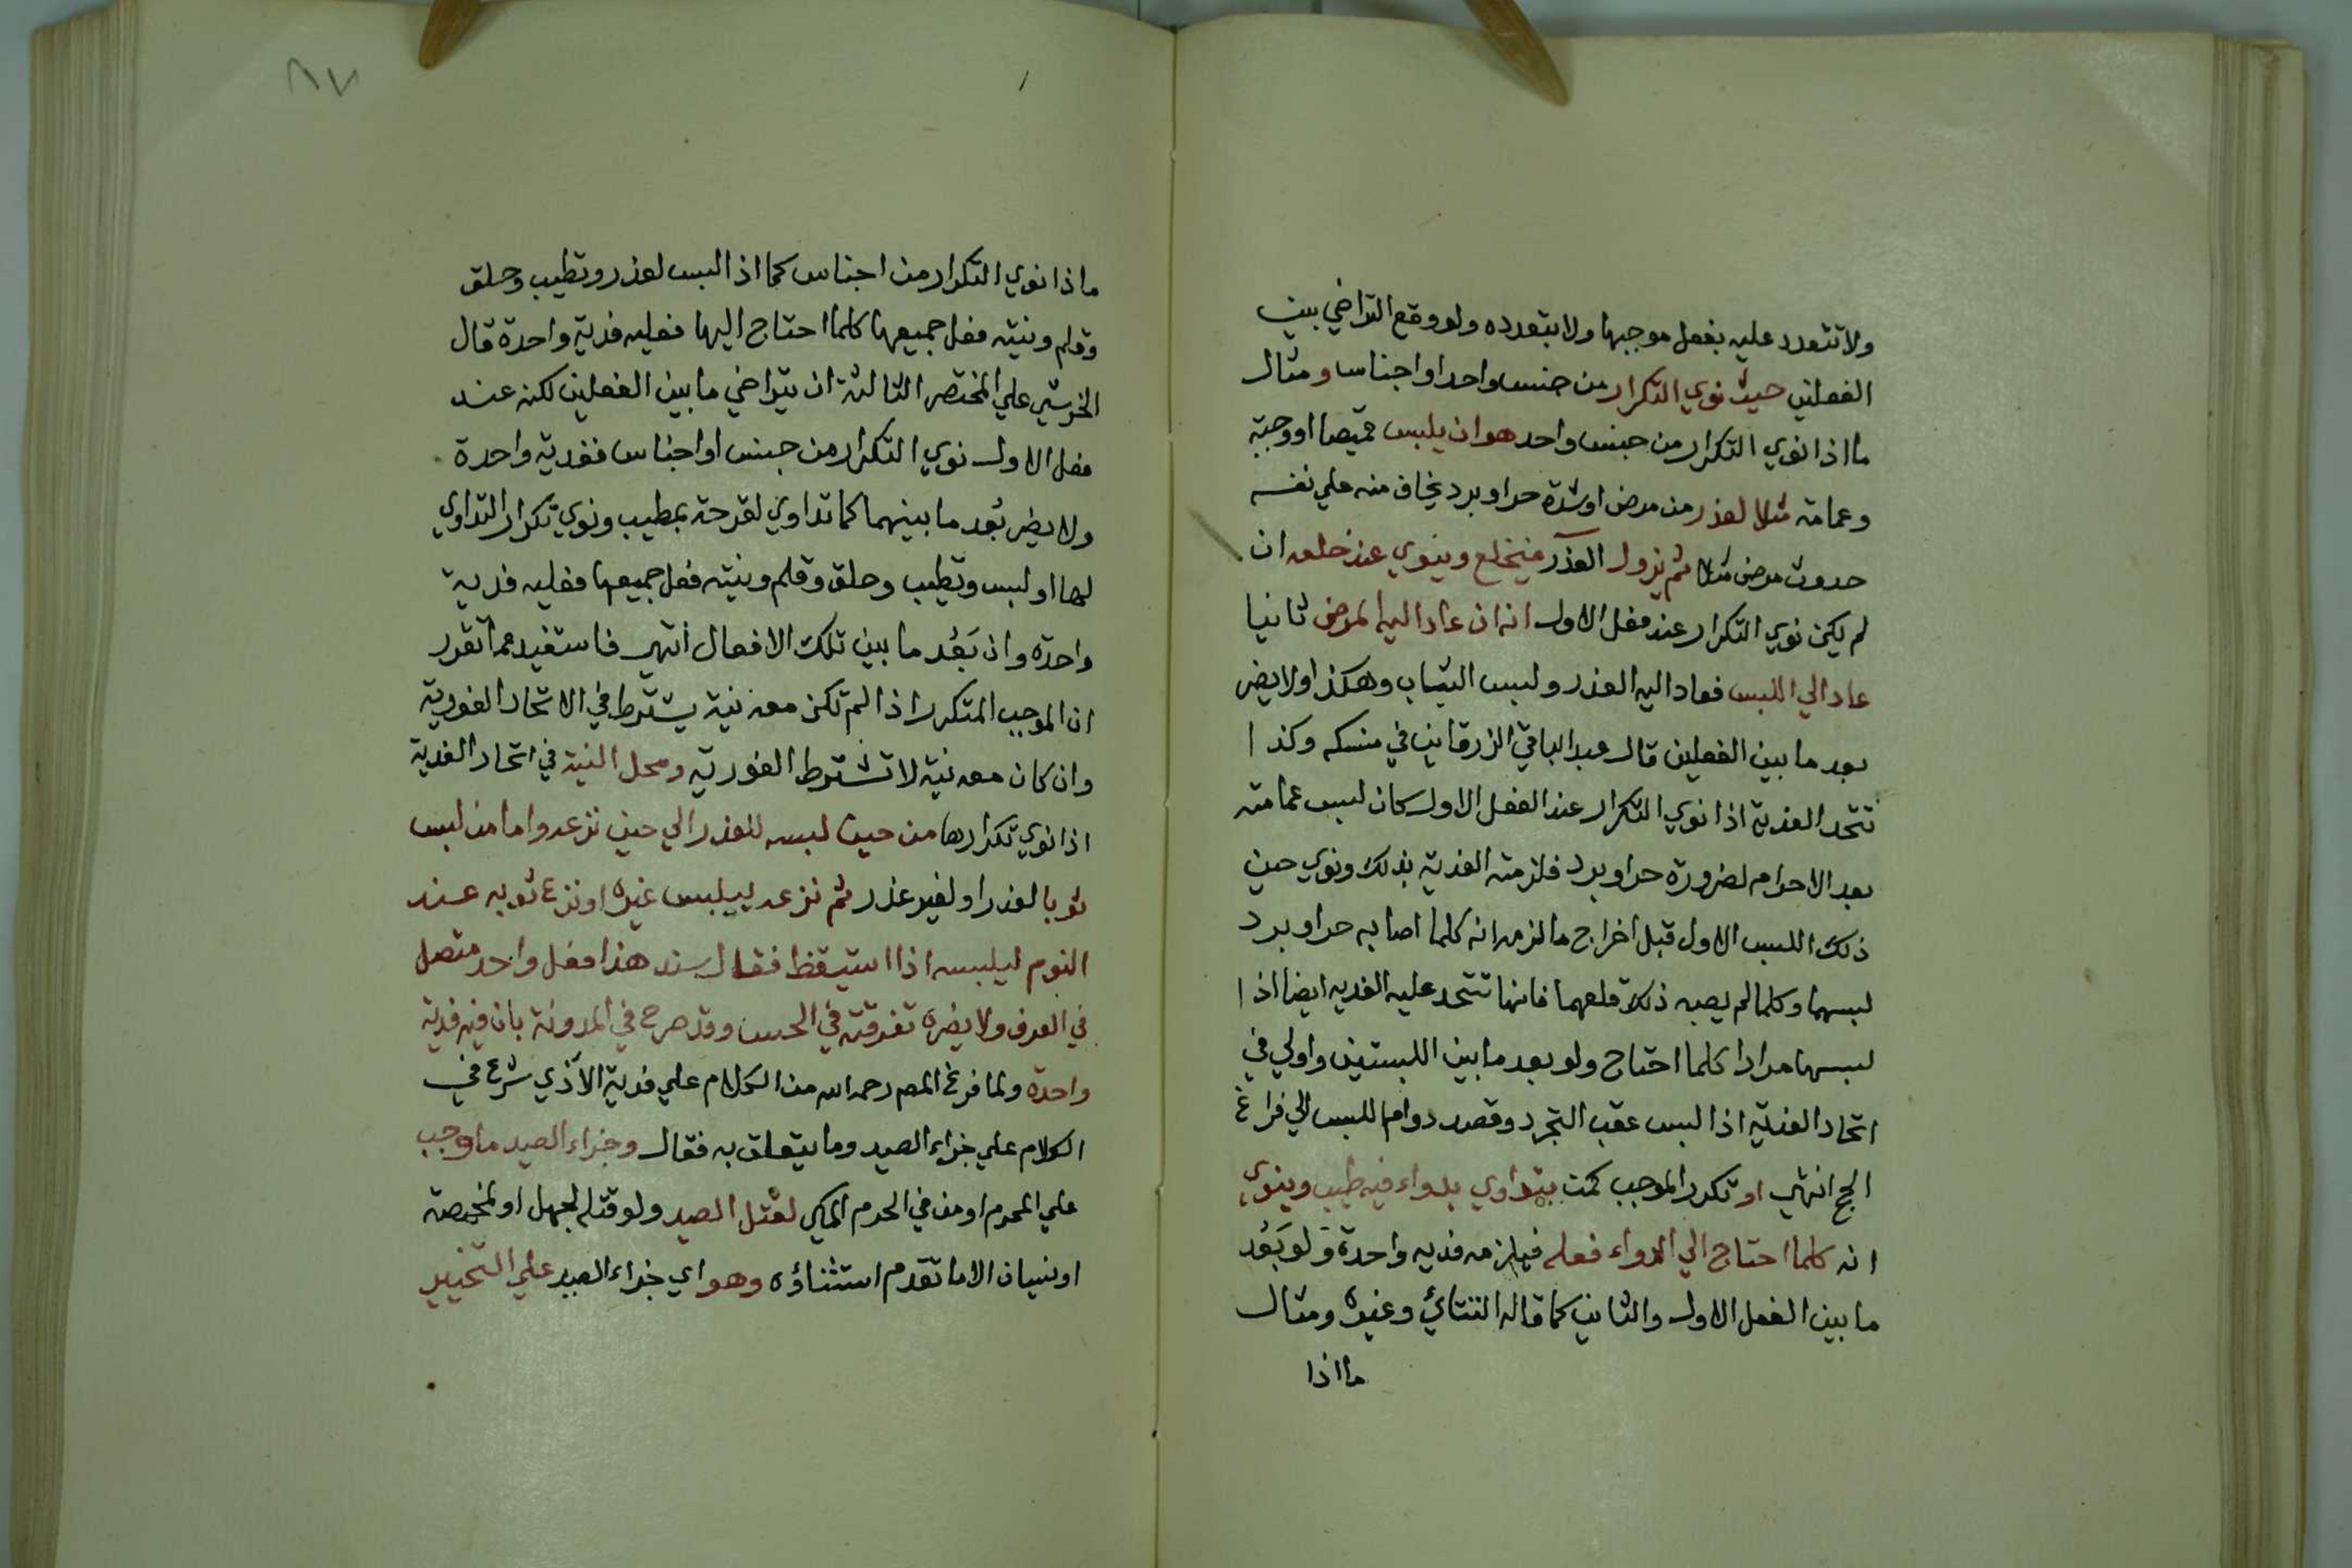 ولا تتعدد عليه بفعل موجبها ولا بتعدده ولو وقع التراخي بين
الفعلين حيث نوي التكرار من جنس واحد او اجناس ومثال
ما اذا نوي التكرار من جنس واحد هو ان يلبس قميصا او وجبة
وعمامة مثلا لعذر من مرض او شدة حر او برد يخاف منه علي نفسه
حدوث مرض مثلا ثم يزول العذر فيخلع وينوي عند خلعه ان
لم يكن نوي التكرار عند فعل الاول انه ان عاد اليه المرض ثانيا
عاد الي اللبس فعاد اليه العذر ولبس الثياب وهكذا ولا يضر
بعد ما بين الفعلين قال عبد الباقي الزرقاني في منسكه وكذا
تتحد الفدية اذا نوي التكرار عند الفعل الاول كان لبس عمامته
بعد الاحرام لضرورة حر او برد فلزمته الفدية بذلك ونوي حين
ذلك اللبس الاول قبل اخراج ما لزمه انه كلما اصابه حر او برد
لبسهما وكلما لم يصبه ذلك قلعهما فانها تتحد عليه الفدية ايضا اذا
لبسها مرارا كلما احتاج ولو بعد ما بين اللبستين واولي في
اتحاد الفدية اذا لبس عقب التجرد وقصد دوام اللبس الي فراغ
الحج انتهي او تكرر الموجب كمن يتداوي بدواء فيه طيب وينوي
انه كلما احتاج الي الدواء فعله فيلزمه فدية واحدة ولو بَعُد
ما بين الفعل الاول والثاني كما قاله التتائي وغيره ومثال
ما اذا
٨٧
ما ذا نوي التكرار من اجناس كما اذا لبس لعذر وتطيب وحلق
وقلم ونيته فعل جميعها كلما احتاج اليها فعليه فدية واحدة قال
الخرشي علي المختصر الثالثة ان يتراخي ما بين الفعلين لكنه عند
فعل الاول نوي التكرار من جنس او اجناس ففدية واحدة
ولا يضر بُعد ما بينهما كما تداوي لقرحة بمطيب ونوي تكرار التداوي
لها او لبس وتطيب وحلق وقلم ونيته فعل جميعها فعليه فدية
واحدة وان بَعُد ما بين تلك الافعال انتهي فاستفيد مما تقرر
ان الموجب المتكرر اذا لم تكن معه نية يشترط في الاتحاد الفورية
وان كان معه نية لا تشترط الفورية ومحل النية في اتحاد الفدية
اذا نوي تكرارها من حين لبسه للعذر الي حين نزعه واما من لبس
ثوبا لعذر او لغير عذر ثم نزعه ليلبس غيره او نزع ثوبه عند
النوم ليلبسه اذا استيقظ فقال سند هذا فعل واحد متصل
في العرف ولا يضره تفرقته في الحس وقد صرح في المدونة بان فيه فدية
واحدة ولما فرغ المص رحمه الله من الكلام علي فدية الاذي شرع في
الكلام علي جزاء الصيد وما يتعلق به فقال وجزاء الصيد ما وجب
علي المحرم او من في الحرم المكي لقتل الصيد ولو قتله لجهل او لمخمصة
او نسيان الا ما تقدم استثناؤه وهو اي جزاء الصيد علي التخيير